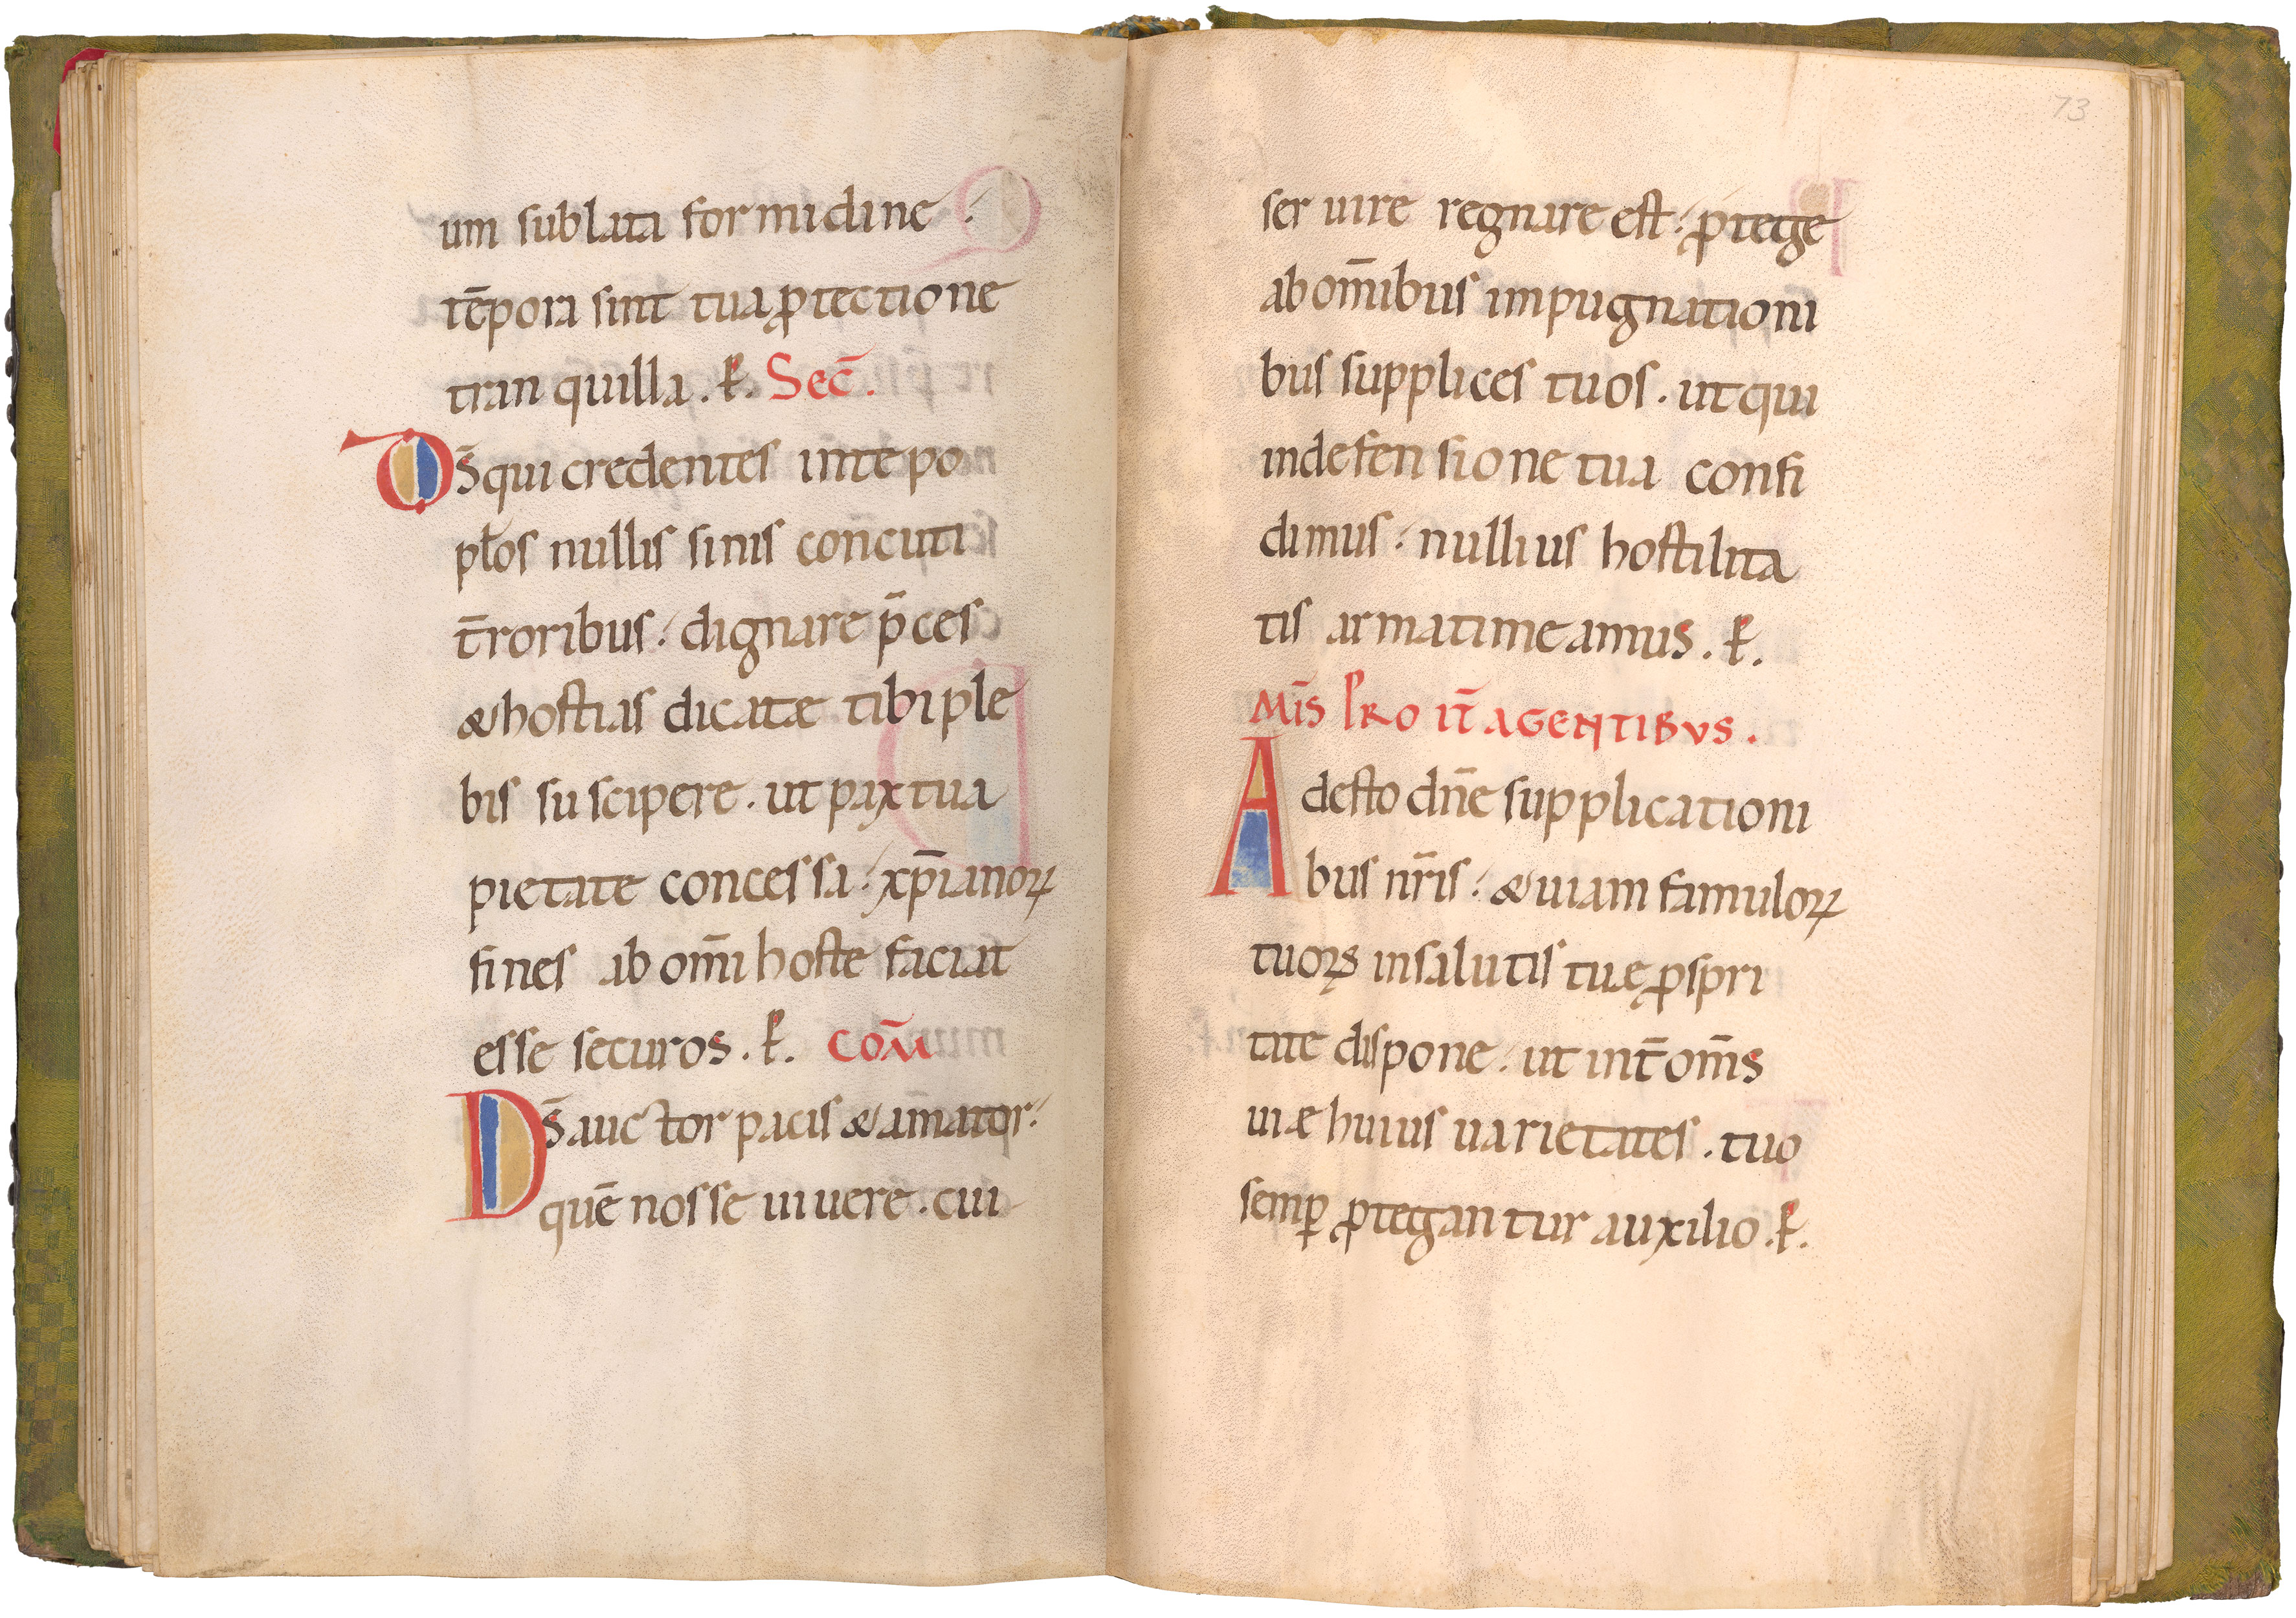 um sublata formidine·
tēpora sint tua ꝓtectione
tranquilla. P̄. Sec̄.
Ds̄ qui credentes in te po
pl̄os nullis sinis con̄cuti
t̄roribus. dignare p̄ces
& hostias dicatæ tibi ple
bis suscipere. ut pax tua
pietate concessa. xp̄ianoꝝ
fines ab om̄i hoste faciat
esse securos. P̄. Com̄
Ds̄ auctor pacis & am̄ator.
quē nosse uiuere. cui
73
seruire regnare est. ꝓtege
ab om̄ibus impugnationi
bus supplices tuos. ut qui
in defensione tua confi
dimus. nullius hostilita
tis arma timeamus. P̄.
MIS̄ PRO IT̄ AGENTIBVS.
Adesto dn̄e supplicationi
bus nr̄is. & uiam famuloꝝ
tuoꝝ in salutis tuę ꝓspri
tate dispone. ut int̄ om̄s
uiæ huius uarietates. tuo
semꝑ ꝓtegantur auxilio. P̄.